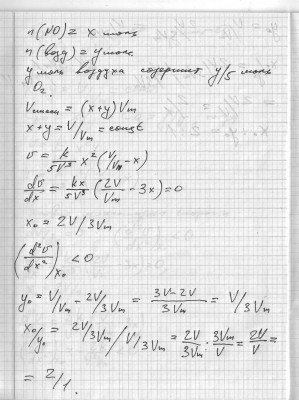 n(NO) = x моль
n(возд) = y моль
y моль воздуха содержит y/5 моль
O₂.
Vсмеси = (x+y)Vm
x+y = V/Vm = const
v = k/5V³ x²(V/Vm - x)
dv/dx = kx/5V³ (2V/Vm - 3x) = 0
x₀ = 2V/3Vm
(d²v/dx²)x₀ < 0
y₀ = V/Vm - 2V/3Vm = 3V-2V/3Vm = V/3Vm
x₀/y₀ = 2V/3Vm / V/3Vm = 2V/3Vm · 3Vm/V = 2V/V =
= 2/1.